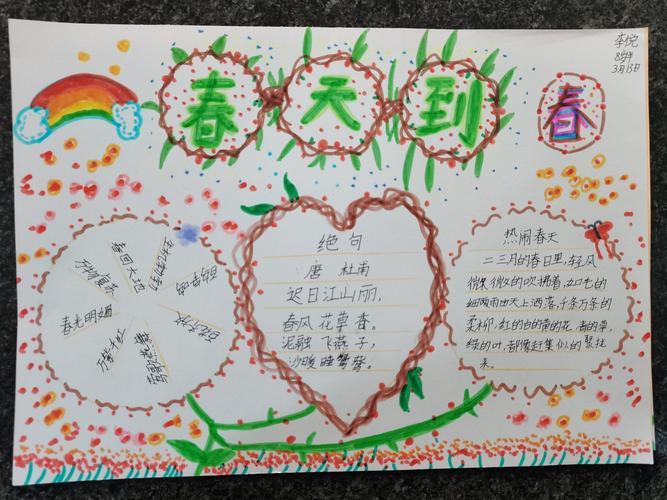 春天到
春
李悦
春回大地
万物复苏
春光明媚
万紫千红
百花齐放
绝句
唐 杜甫
迟日江山丽,
春风花草香。
泥融飞燕子,
沙暖睡鸳鸯。
热闹春天
二三月的春日里,轻风
微微的吹拂着,如毛的
细雨由天上洒落,千条万条的
柔柳.红的白的黄的花,青的草,
绿的叶.都像赶集似的聚拢
来。